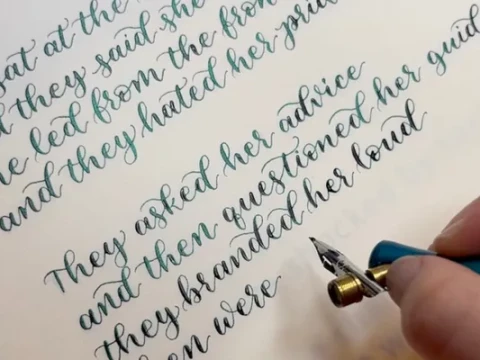 sat at the
they said she
led from the
and they hated her
They asked her advice
and then questioned her
they branded her loud
were